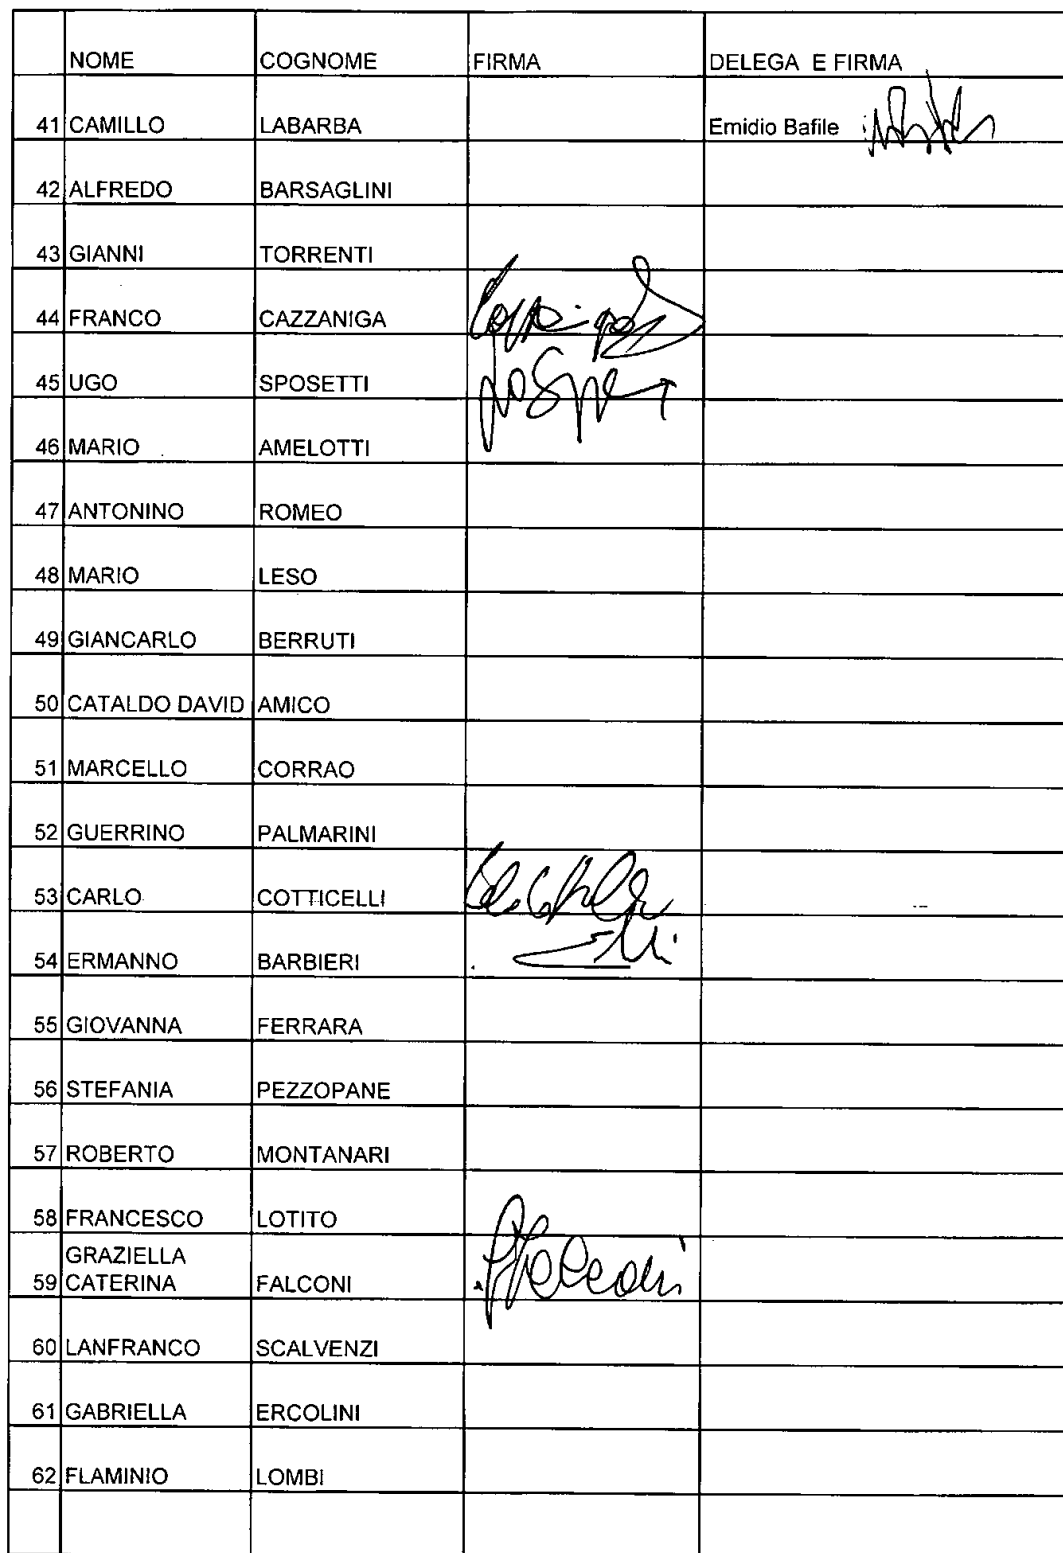 NOME COGNOME FIRMA DELEGA E FIRMA
41 CAMILLO LABARBA Emidio Bafile
42 ALFREDO BARSAGLINI
43 GIANNI TORRENTI
44 FRANCO CAZZANIGA
45 UGO SPOSETTI
46 MARIO AMELOTTI
47 ANTONINO ROMEO
48 MARIO LESO
49 GIANCARLO BERRUTI
50 CATALDO DAVID AMICO
51 MARCELLO CORRAO
52 GUERRINO PALMARINI
53 CARLO COTTICELLI
54 ERMANNO BARBIERI
55 GIOVANNA FERRARA
56 STEFANIA PEZZOPANE
57 ROBERTO MONTANARI
58 FRANCESCO LOTITO
GRAZIELLA
59 CATERINA FALCONI
60 LANFRANCO SCALVENZI
61 GABRIELLA ERCOLINI
62 FLAMINIO LOMBI